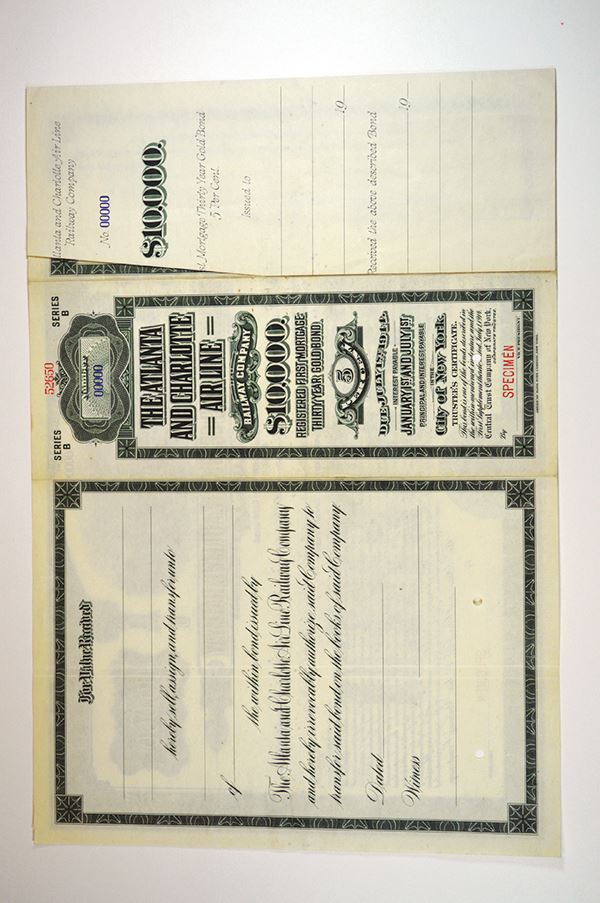 lanta and Charlotte Air Line
Railway Company
No. 00000
$10,000.
st Mortgage Thirty Year Gold Bond
5 Per Cent.
issued to
19
Received the above described Bond
19
52650
SERIES
B
SERIES
B
Number
00000
THE ATLANTA
AND CHARLOTTE
AIR LINE
RAILWAY COMPANY
$10,000.
REGISTERED FIRST MORTGAGE
THIRTY YEAR GOLD BOND.
5
PER CENT
INTEREST PAYABLE
JANUARY 1ST AND JULY 1ST
PRINCIPAL AND INTEREST PAYABLE
IN THE
City of New York.
TRUSTEE'S CERTIFICATE.
This bond is one of the bonds described in
the within mentioned indenture and the
First Supplement thereto
Central Trust Company of New York,
By
SPECIMEN
VICE PRESIDENT.
For Value Received
hereby sell, assign, and transfer unto
of
the within bond issued by
The Atlanta and Charlotte Air Line Railway Company
and hereby irrevocably authorize said Company to
transfer said bond on the books of said Company
Dated
Witness